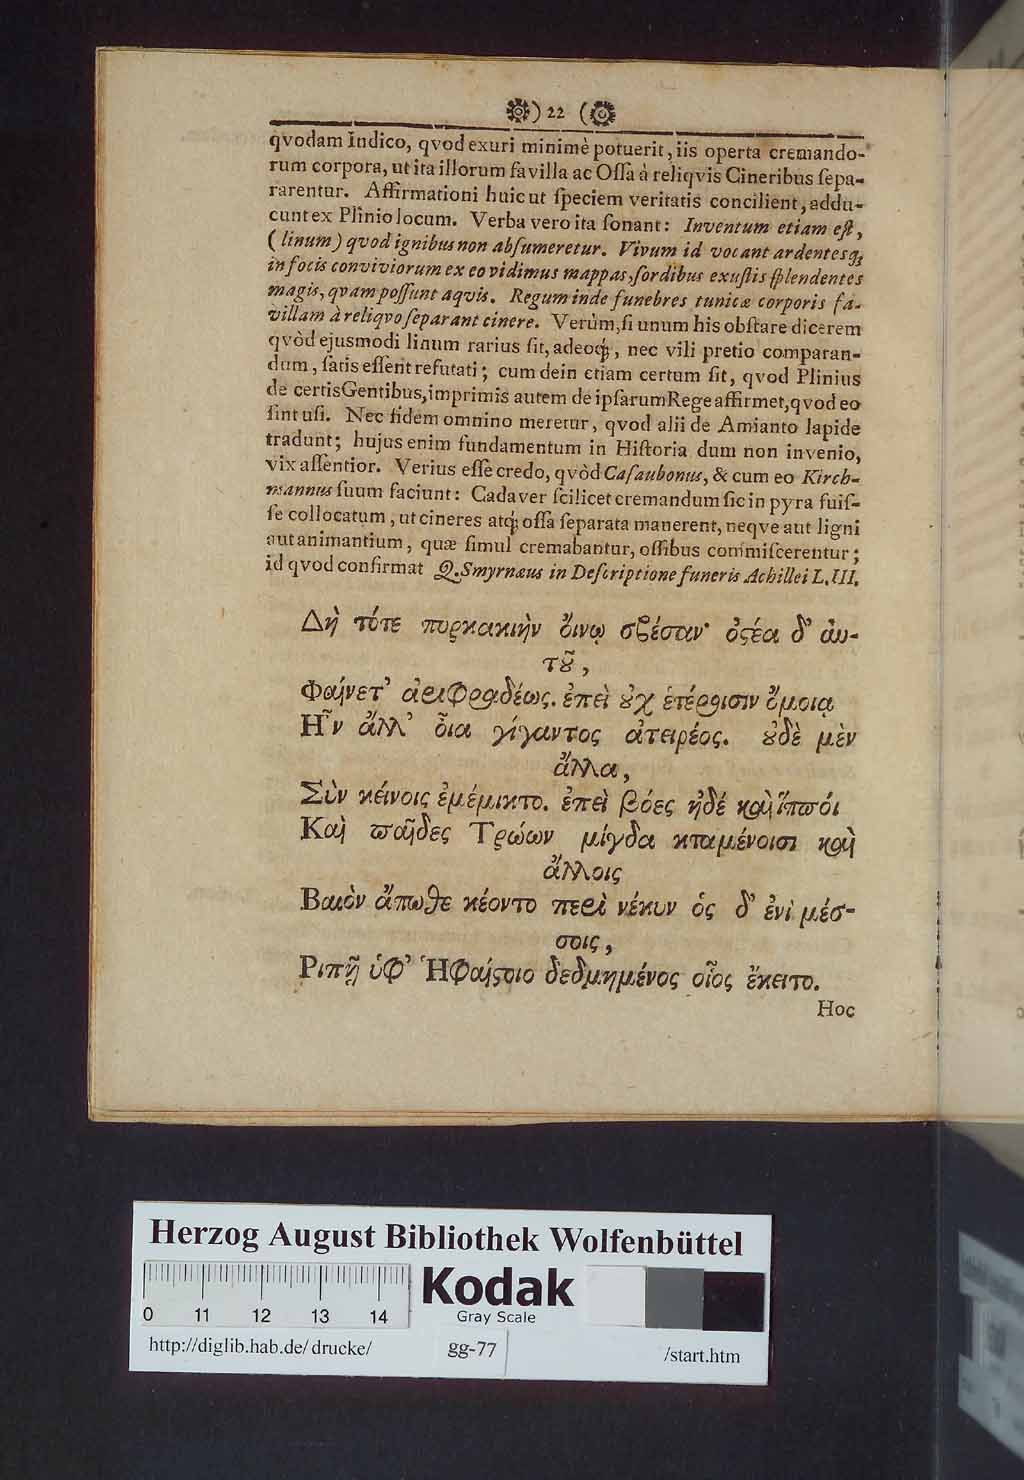 ) 22 (
qvodam Indico, qvod exuri minimè potuerit, iis operta cremando-
rum corpora, ut ita illorum favilla ac Oſſa à reliqvis Cineribus ſepa-
rarentur. Affirmationi huic ut ſpeciem veritatis concilient, addu-
cunt ex Plinio locum. Verba vero ita ſonant: Inventum etiam eſt,
( linum ) qvod ignibus non abſumeretur. Vivum id vocant ardentesq;
in focis conviviorum ex eo vidimus mappas, ſordibus exuſtis ſplendentes
magis, qvam poſſunt aqvis. Regum inde funebres tunicæ corporis fa-
villam à reliqvo ſeparant cinere. Verùm, ſi unum his obſtare dicerem
qvòd ejusmodi linum rarius ſit, adeoq;, nec vili pretio comparan-
dum, ſatis eſſent refutati; cum dein etiam certum ſit, qvod Plinius
de certis Gentibus, imprimis autem de ipſarum Rege affirmet, qvod eo
ſint uſi. Nec fidem omnino meretur, qvod alii de Amianto lapide
tradunt; hujus enim fundamentum in Hiſtoria dum non invenio,
vix aſſentior. Verius eſſe credo, qvòd Caſaubonus, & cum eo Kirch-
mannus ſuum faciunt: Cadaver ſcilicet cremandum ſic in pyra fuiſ-
ſe collocatum, ut cineres atq; oſſa ſeparata manerent, neqve aut ligni
aut animantium, quæ ſimul cremabantur, oſſibus commiſcerentur;
id qvod confirmat Q. Smyrnæus in Deſcriptione funeris Achillei L. III.
Δὴ τότε πυρκακιὴν ὄινῳ σβέσαν· ὀϛέα δ' ἀυ-
τȣ͂,
Φαίνετ' ἀριφραδέως. ἐπεὶ ȣ̓χ ἑτέροισιν ὄμοιᾳ
Ἠ῏ν ἄλλ' ὃια γίγαντος ἀτειρέος. ȣ̓δὲ μὲν
ἄλλα,
Σὺν κέινοις ἐμέμικτο. ἐπεὶ βόες ἠδέ καὶ ἵπποι
Καὶ παῖδες Τρώων μίγδα κταμένοισι καὶ
ἄλλοις
Βαιὸν ἄπωθε κέοντο περὶ νέκυν ὁς δ' ἐνὶ μέσ-
σοις,
Ριπῇ ὑφ' Ἡφαίϛοιο δεδμημένος οἶος ἔκειτο.
Hoc
Herzog August Bibliothek Wolfenbüttel
Kodak
Gray Scale
0 11 12 13 14
http://diglib.hab.de/drucke/ gg-77 /start.htm